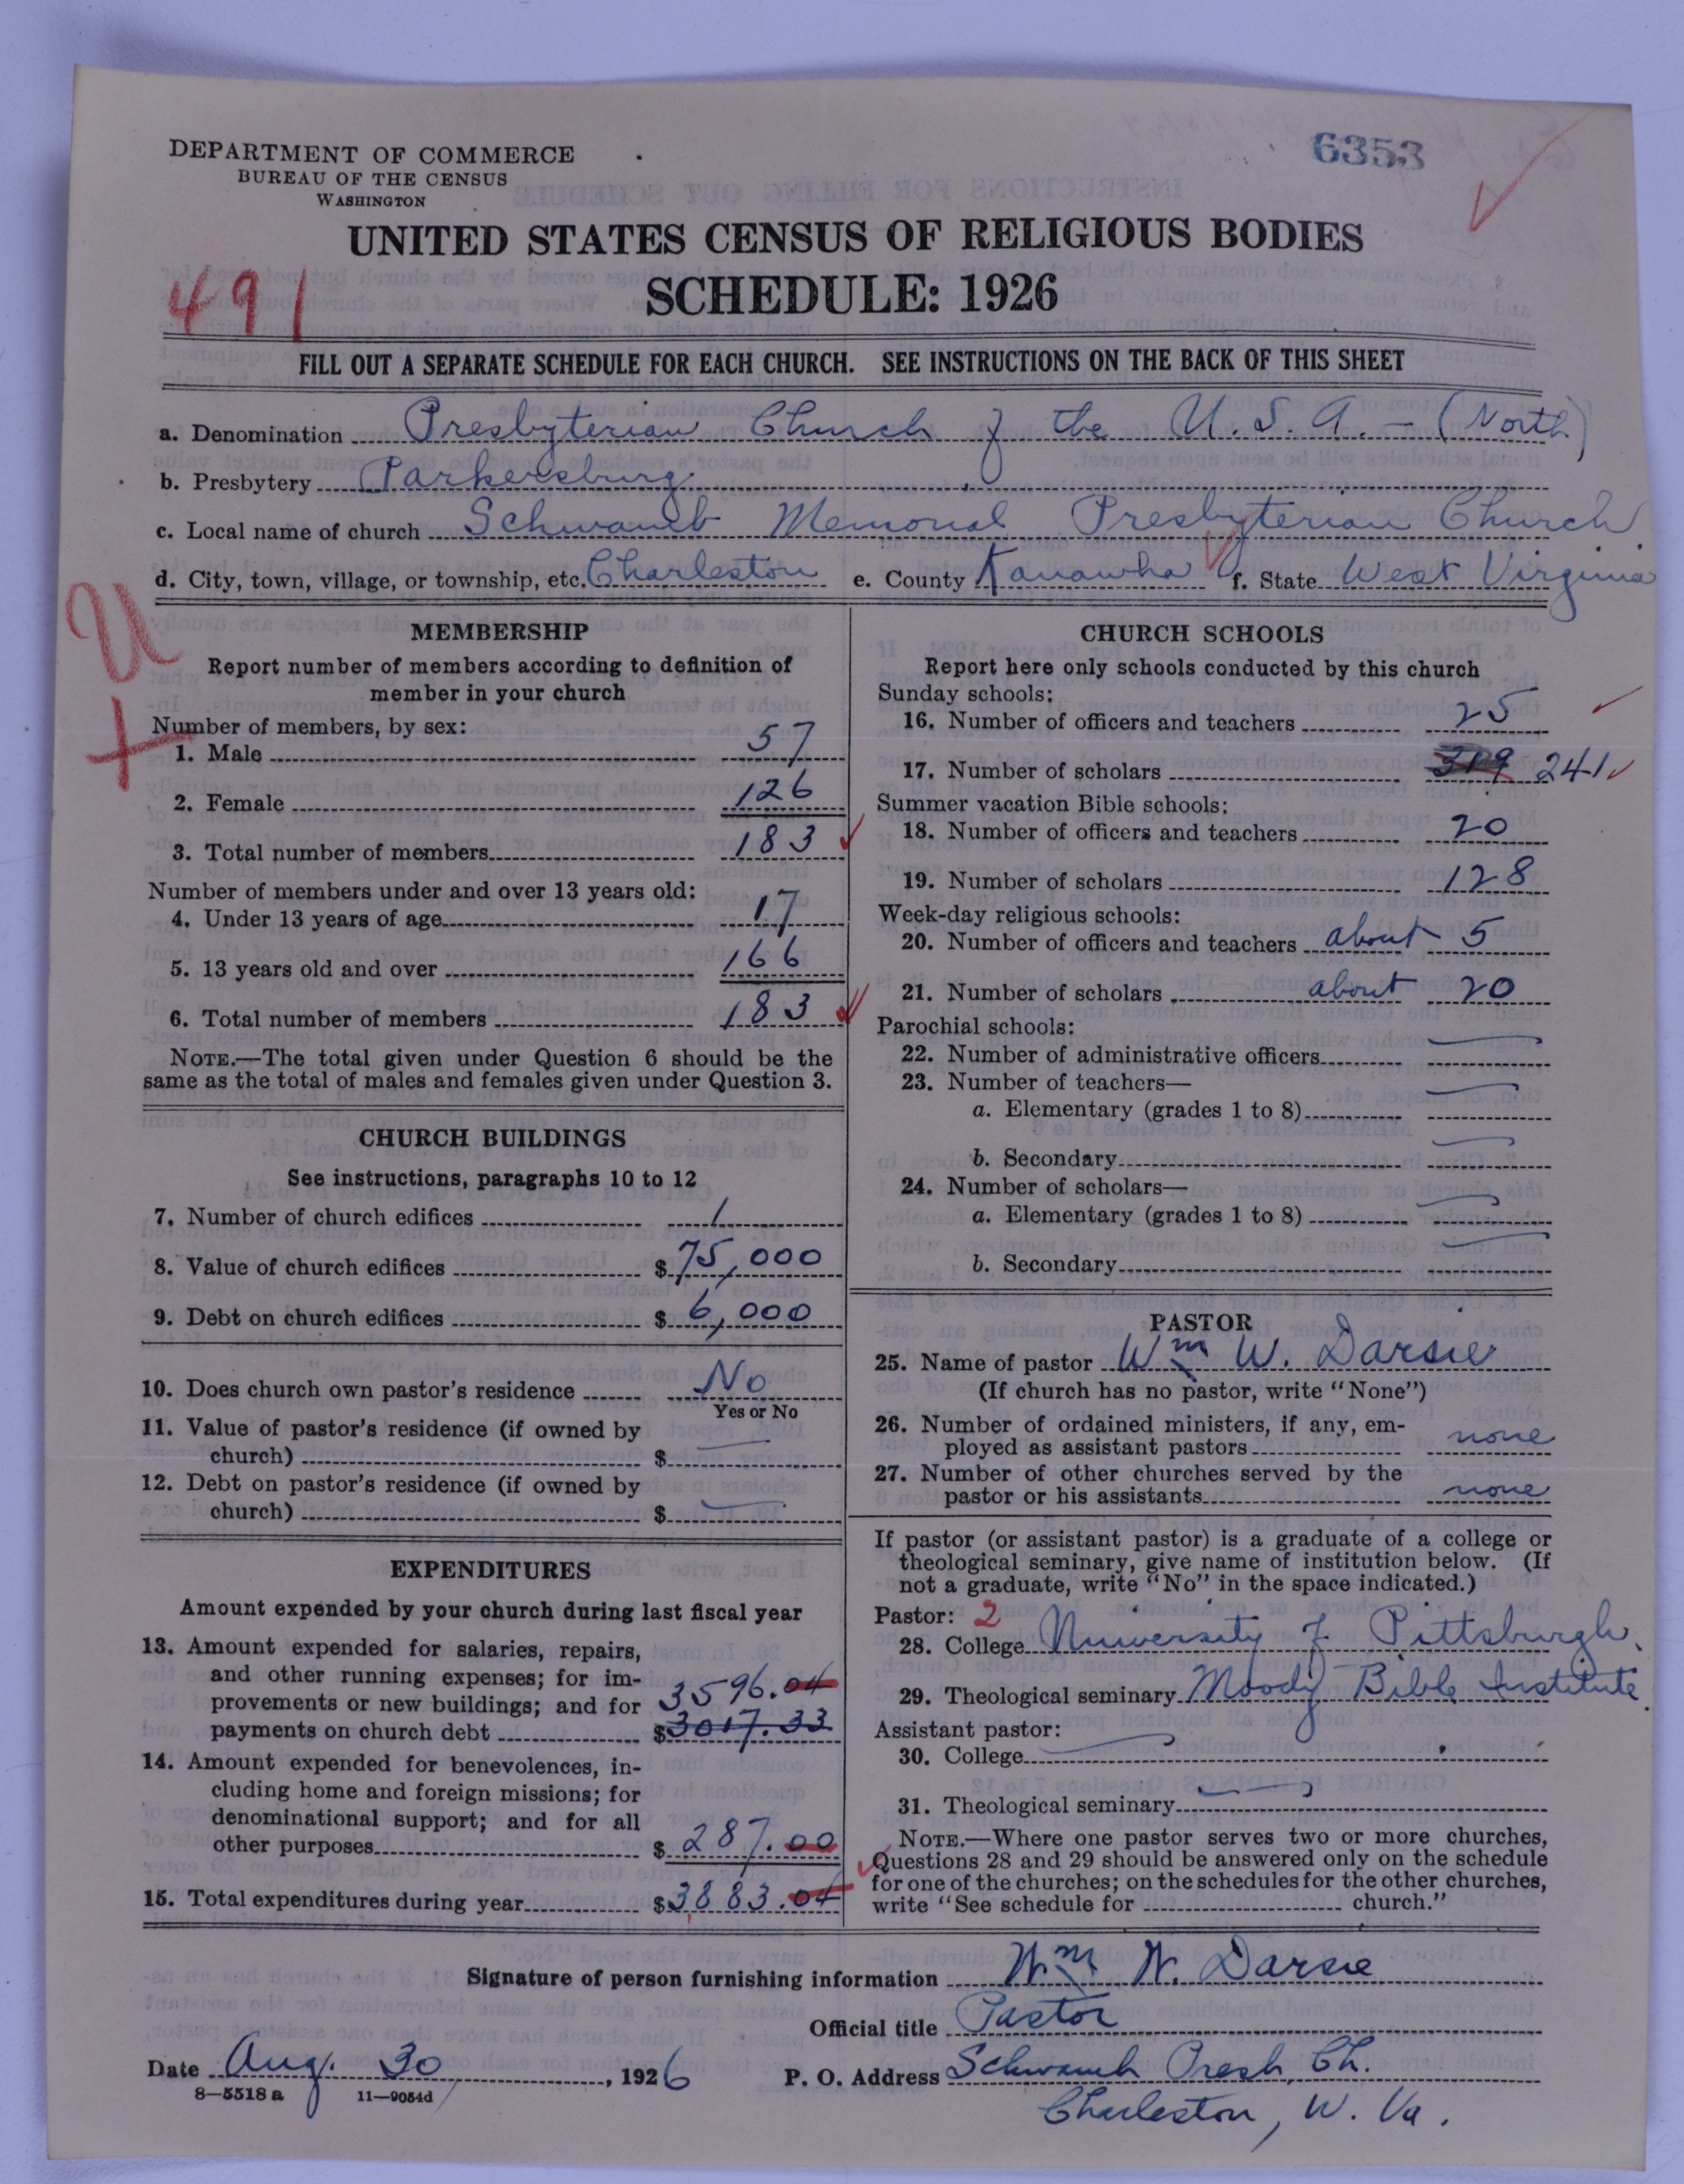 6353
DEPARTMENT OF COMMERCE
BUREAU OF THE CENSUS
WASHINGTON
UNITED STATES CENSUS OF RELIGIOUS BODIES
SCHEDULE: 1926
491
FILL OUT A SEPARATE SCHEDULE FOR EACH CHURCH. SEE INSTRUCTIONS ON THE BACK OF THIS SHEET
a. Denomination Presbyterian Church of the U.S.A. - (North)
b. Presbytery Parkersburg
c. Local name of church Schwamb Memorial Presbyterian Church
d. City, town, village, or township, etc. Charleston e. County Kanawha f. State West Virginia
U
MEMBERSHIP
Report number of members according to definition of
member in your church
Number of members, by sex:
1. Male 57
2. Female 126
3. Total number of members 183
Number of members under and over 13 years old:
4. Under 13 years of age 17
5. 13 years old and over 166
6. Total number of members 183
NOTE.—The total given under Question 6 should be the
same as the total of males and females given under Question 3.
CHURCH BUILDINGS
See instructions, paragraphs 10 to 12
7. Number of church edifices 1
8. Value of church edifices $ 75,000
9. Debt on church edifices $ 6,000
10. Does church own pastor's residence No
Yes or No
11. Value of pastor's residence (if owned by
church) $ —
12. Debt on pastor's residence (if owned by
church) $ —
EXPENDITURES
Amount expended by your church during last fiscal year
13. Amount expended for salaries, repairs,
and other running expenses; for im-
provements or new buildings; and for 3596.04
payments on church debt $ 3017.33
14. Amount expended for benevolences, in-
cluding home and foreign missions; for
denominational support; and for all
other purposes $ 287.00
15. Total expenditures during year $ 3883.04
CHURCH SCHOOLS
Report here only schools conducted by this church
Sunday schools:
16. Number of officers and teachers 25
17. Number of scholars 319 241
Summer vacation Bible schools:
18. Number of officers and teachers 20
19. Number of scholars 128
Week-day religious schools:
20. Number of officers and teachers about 5
21. Number of scholars about 20
Parochial schools:
22. Number of administrative officers —
23. Number of teachers—
a. Elementary (grades 1 to 8) —
b. Secondary —
24. Number of scholars—
a. Elementary (grades 1 to 8) —
b. Secondary —
PASTOR
25. Name of pastor Wm W. Darsie
(If church has no pastor, write "None")
26. Number of ordained ministers, if any, em-
ployed as assistant pastors none
27. Number of other churches served by the
pastor or his assistants none
If pastor (or assistant pastor) is a graduate of a college or
theological seminary, give name of institution below. (If
not a graduate, write "No" in the space indicated.)
Pastor: 2
28. College University of Pittsburgh.
29. Theological seminary Moody Bible Institute.
Assistant pastor:
30. College —
31. Theological seminary —
NOTE.—Where one pastor serves two or more churches,
Questions 28 and 29 should be answered only on the schedule
for one of the churches; on the schedules for the other churches,
write "See schedule for church."
Signature of person furnishing information Wm W. Darsie
Official title Pastor
Date Aug. 30, 1926 P. O. Address Schwamb Presb. Ch.
8—5518 a 11—9054d Charleston, W. Va.